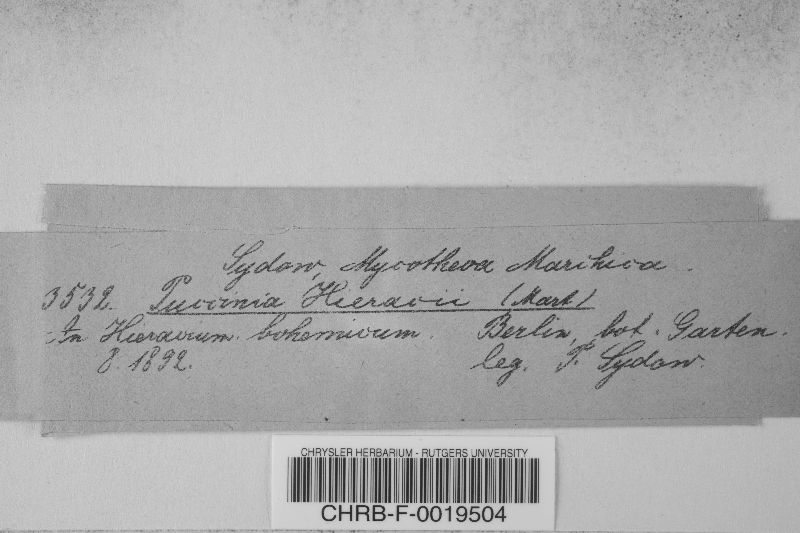 Sydow, Mycotheca Marchica.
3532. Puccinia Hieracii (Mart)
An Hieracium bohemicum. Berlin, bot. Garten.
8. 1892. leg. P. Sydow.
CHRYSLER HERBARIUM - RUTGERS UNIVERSITY
CHRB-F-0019504